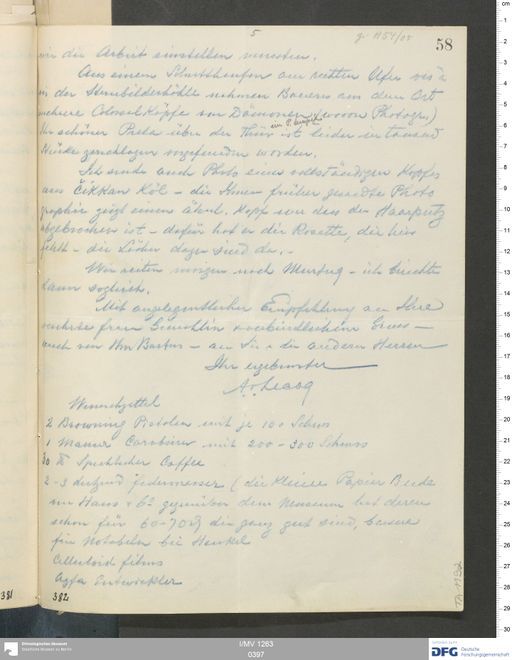 5
58
wir die Arbeit einstellen mussten.
Aus einem Schutthaufen am rechten Ufer vis à
vis der Sternbilderhöhle nahmen Bauern aus dem Ort
mehrere Colossal Köpfe von Dämonen (wovon Photogr.)
Ihr schöner Preta über der Thür ist leider in tausend
Stücke zerschlagen vorgefunden worden.
Ich sende auch Photo eines vollständigen Kopfes
aus Čikkan Köl – die Ihnen früher gesandte Photo
graphie zeigt einen ähnl. Kopf von dem der Haarputz
abgebrochen ist – dafür hat er die Rosette, die hier
fehlt – die Löcher dazu sind da. –
Wir reiten morgen nach – ich berichte
dann sogleich.
Mit angelegentlicher Empfehlung an Ihre
verehrte Frau Gemahlin & verbindlichstem Gruss –
auch von Hrn Bartus – an Sie & die anderen Herren
Ihr ergebenster
A. v. Lecoq
Wunschzettel
2 Browning Pistolen mit je 100 Schuss
1 Mauser Carabiner mit 200 – 300 Schuss
Caffee
2 – 3 dutzend Federmesser (die kleine Papier Bude
im Haus & Co gegenüber dem Museum hat deren
schon für 60 – 70 die ganz gut sind, bessere
für Notabeln bei Henkel
Celluloid films
Agfa Entwickler
381
382
TA 1192
I/MV 1263
0397
Ethnologisches Museum
Staatliche Museen zu Berlin
DFG
Deutsche
Forschungsgemeinschaft